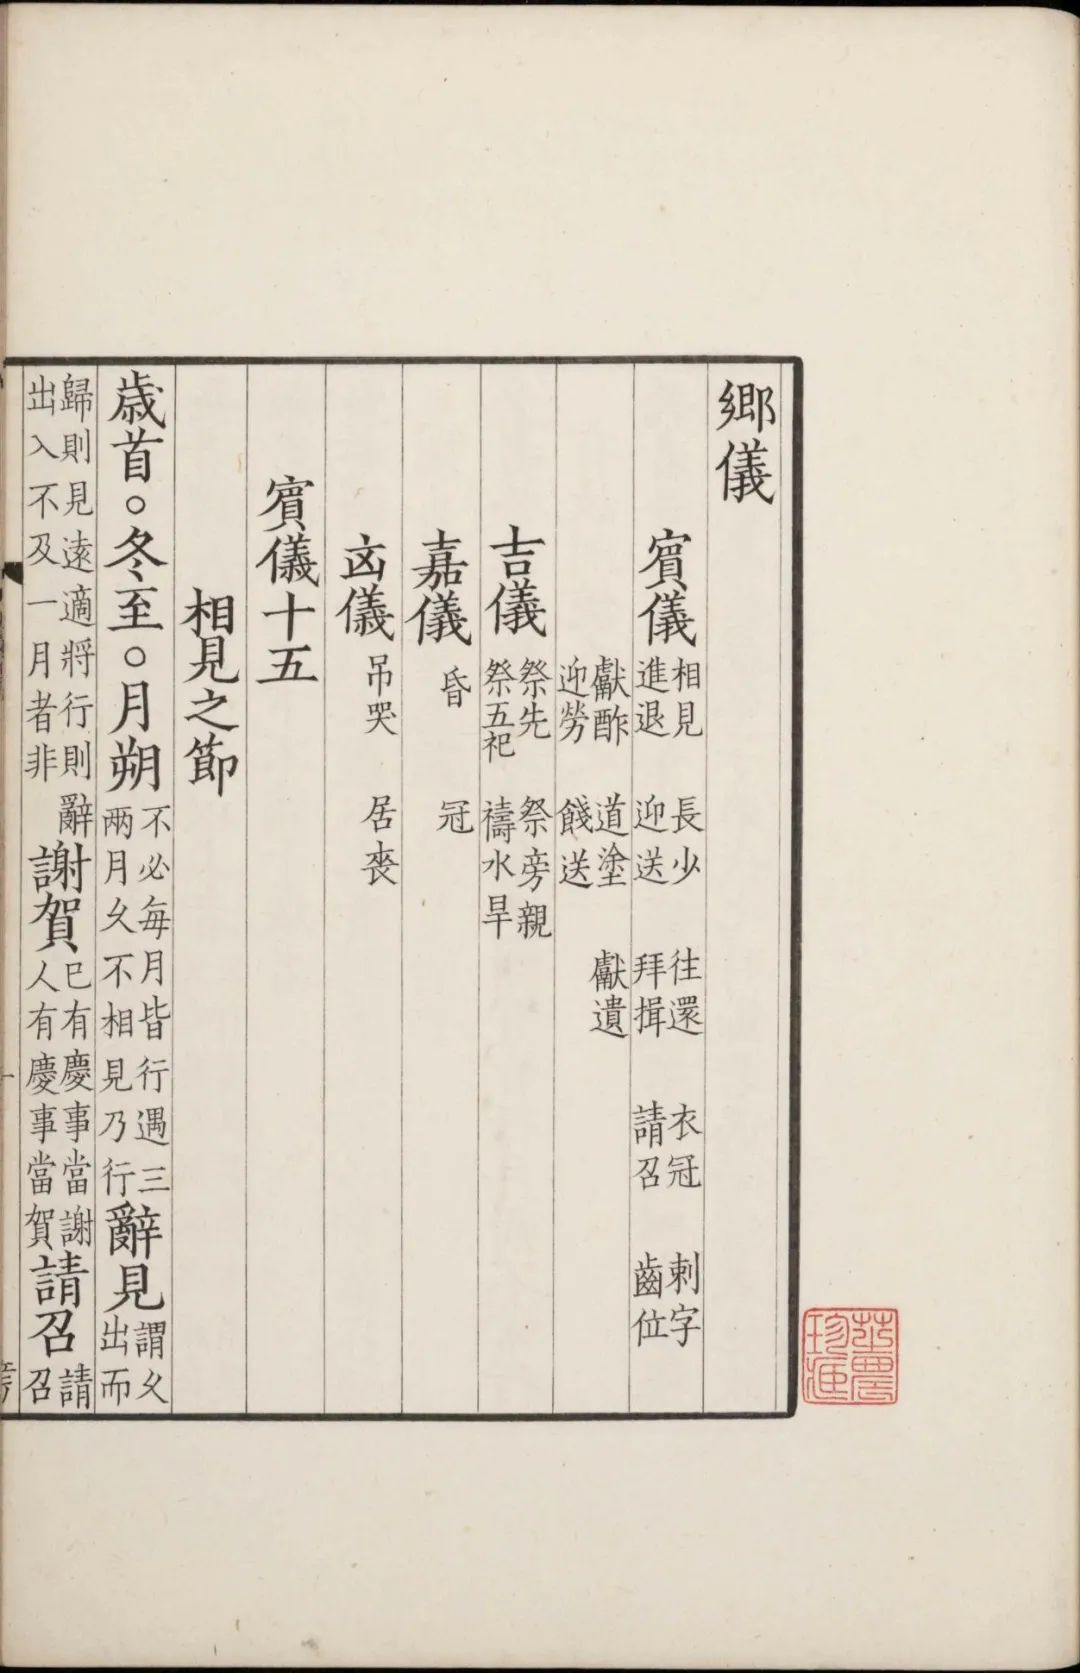 鄉儀
賓儀
相見 長少 往還 衣冠 刺字
進退 迎送 拜揖 請召 齒位
獻酢 道塗 獻遺
迎勞 餞送
吉儀
祭先 祭旁親
祭五祀 禱水旱
嘉儀 昏 冠
凶儀 吊哭 居喪
賓儀十五
相見之節
歳首○冬至○月朔
不必每月皆行遇三
兩月久不相見乃行
辭見
謂久
出而
歸則見遠適將行則辭
出入不及一月者非
謝賀
已有慶事當謝
人有慶事當賀
請召
請
召